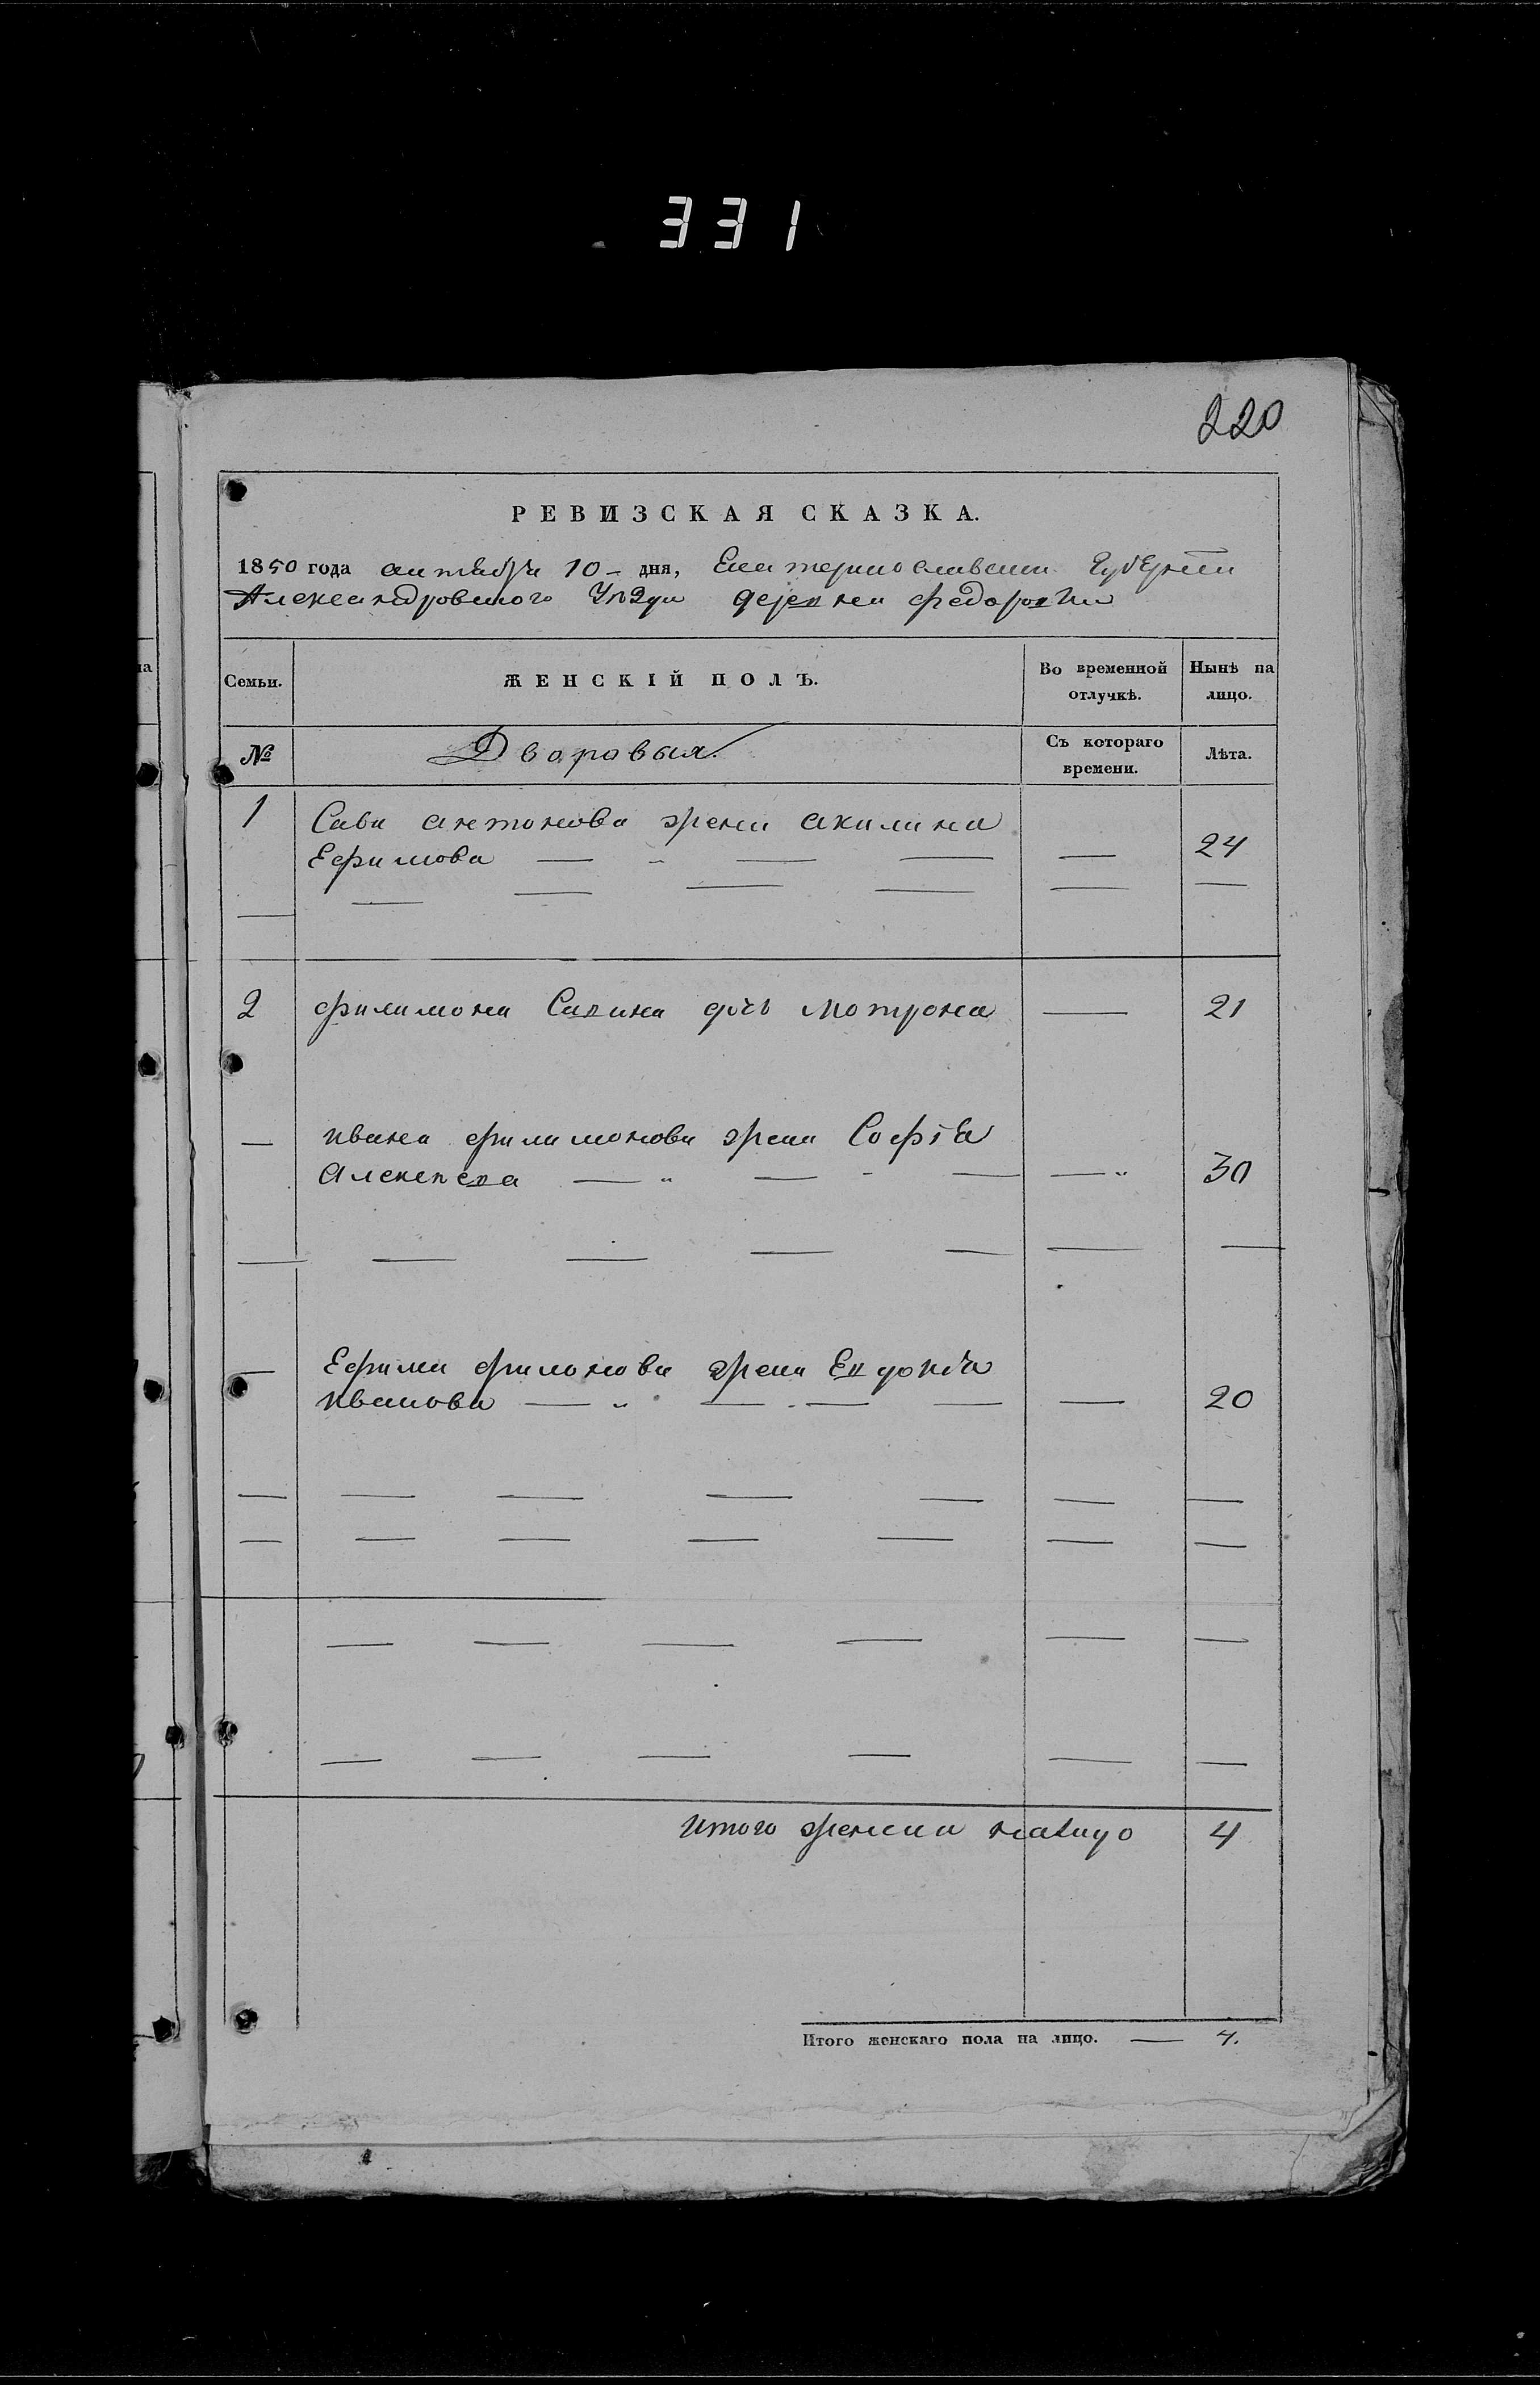 331
220
РЕВИЗСКАЯ СКАЗКА.
1850 года октября 10 – дня, Екатеринославской Губернии
Александровского Уезда деревни федоровки
Семьи. ЖЕНСКІЙ ПОЛЪ. Во временной отлучкѣ. Нынѣ на лицо.
№ Дворовыя. Съ котораго времени. Лѣта.
1 Сави антонова жена акилина
Ефимова — 24
2 филимона Савина дочь мотрона — 21
— ивана филимонова жена Софія
Алексѣева — 30
— Ефима филмонова жена Евдокия
иванова — 20
Итого женска налицо 4
Итого женскаго пола на лицо. — 4.